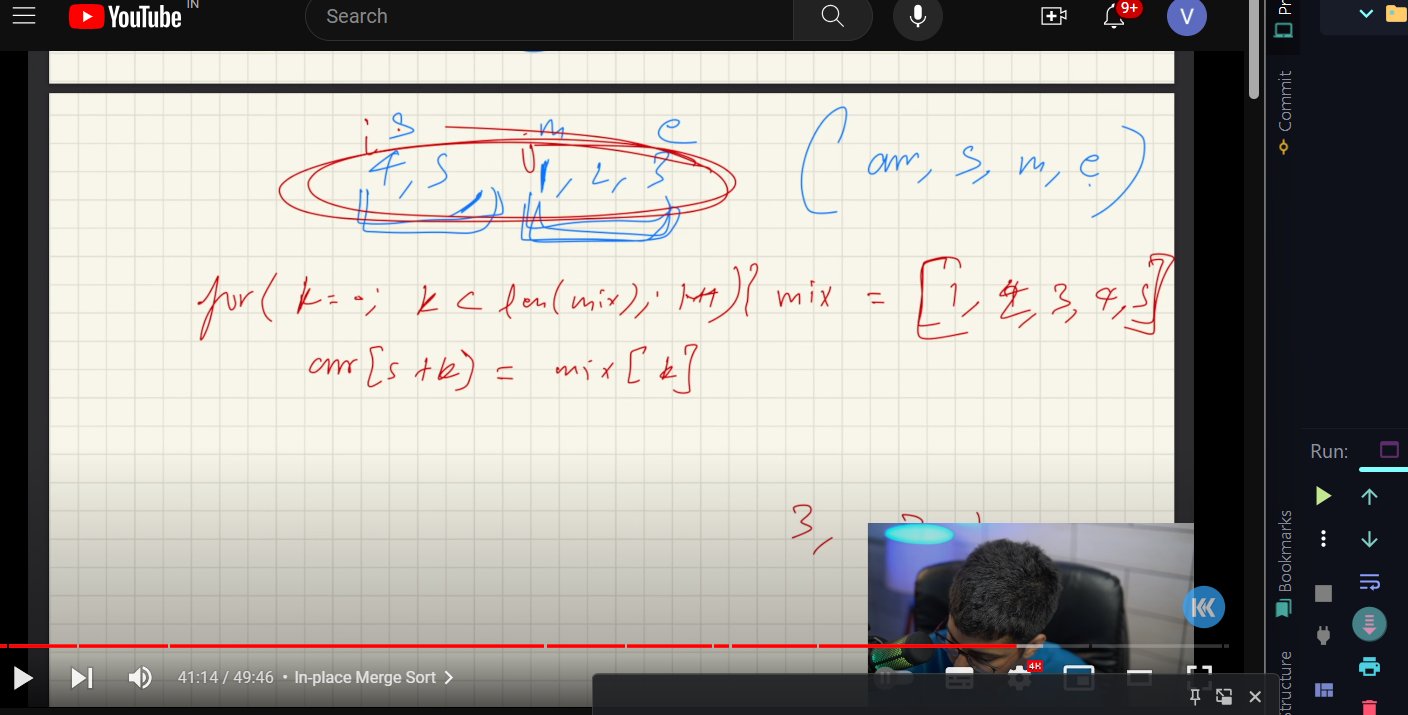 YouTube IN
Search
9+
V
i s m e
j
4, 5 1, 2, 3
(arr, s, m, e)
for( k=0; k < len(mix); k++){ mix = [1, 2, 3, 4, 5]
arr[s+k] = mix[k]
3,
41:14 / 49:46 • In-place Merge Sort
4K
Commit
Bookmarks
Run: